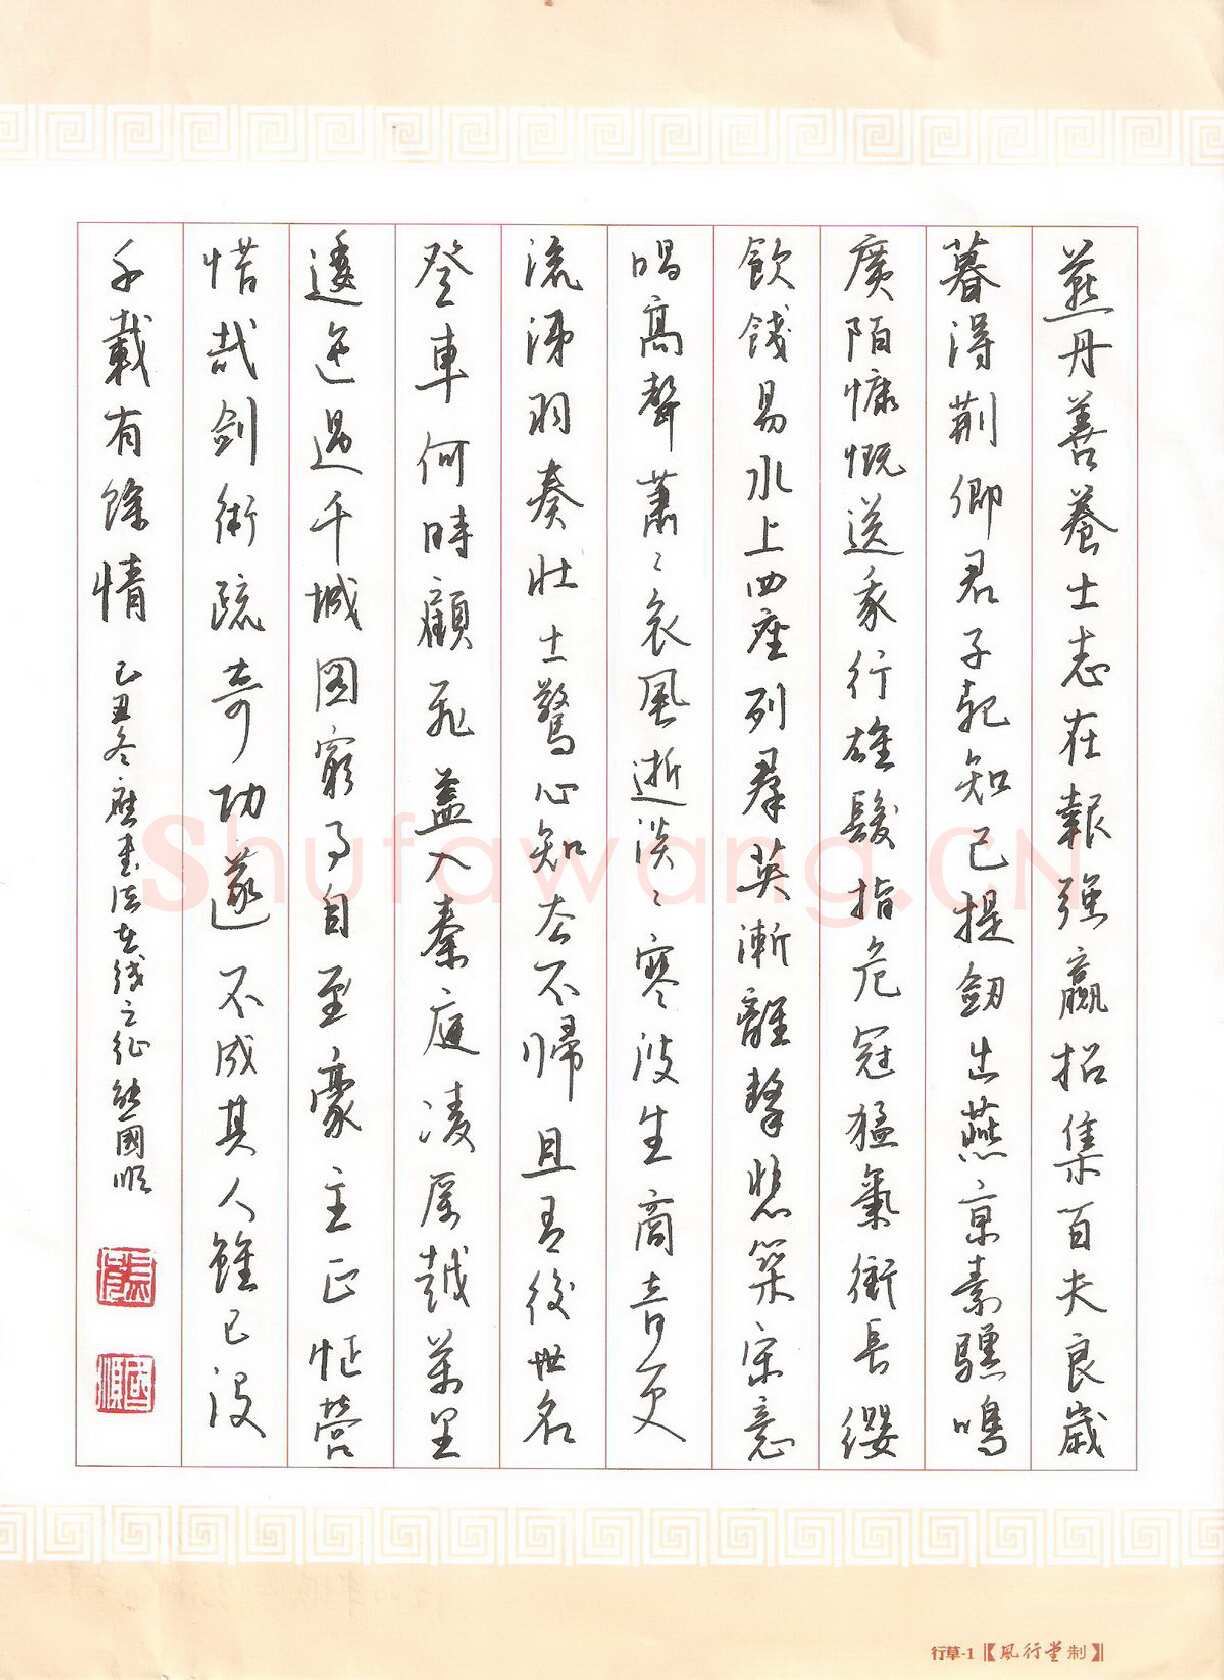 燕丹善養士志在報強嬴招集百夫良歲
暮得荆卿君子死知己提劒出燕京素驥鳴
廣陌慷慨送我行雄髮指危冠猛氣衝長纓
飲餞易水上四座列羣英漸離擊悲筑宋意
唱高聲蕭〻哀風逝淡〻寒波生商音更
流涕羽奏壯士驚心知去不歸且有後世名
登車何時顧飛蓋入秦庭凌厲越萬里
逶迤過千城圖窮事自至豪主正怔營
惜哉劍術疏奇功遂不成其人雖已沒
千載有餘情 己丑冬應書法在线之征 熊國順
國順
Shufawang.CN
行草-1【風行堂制】